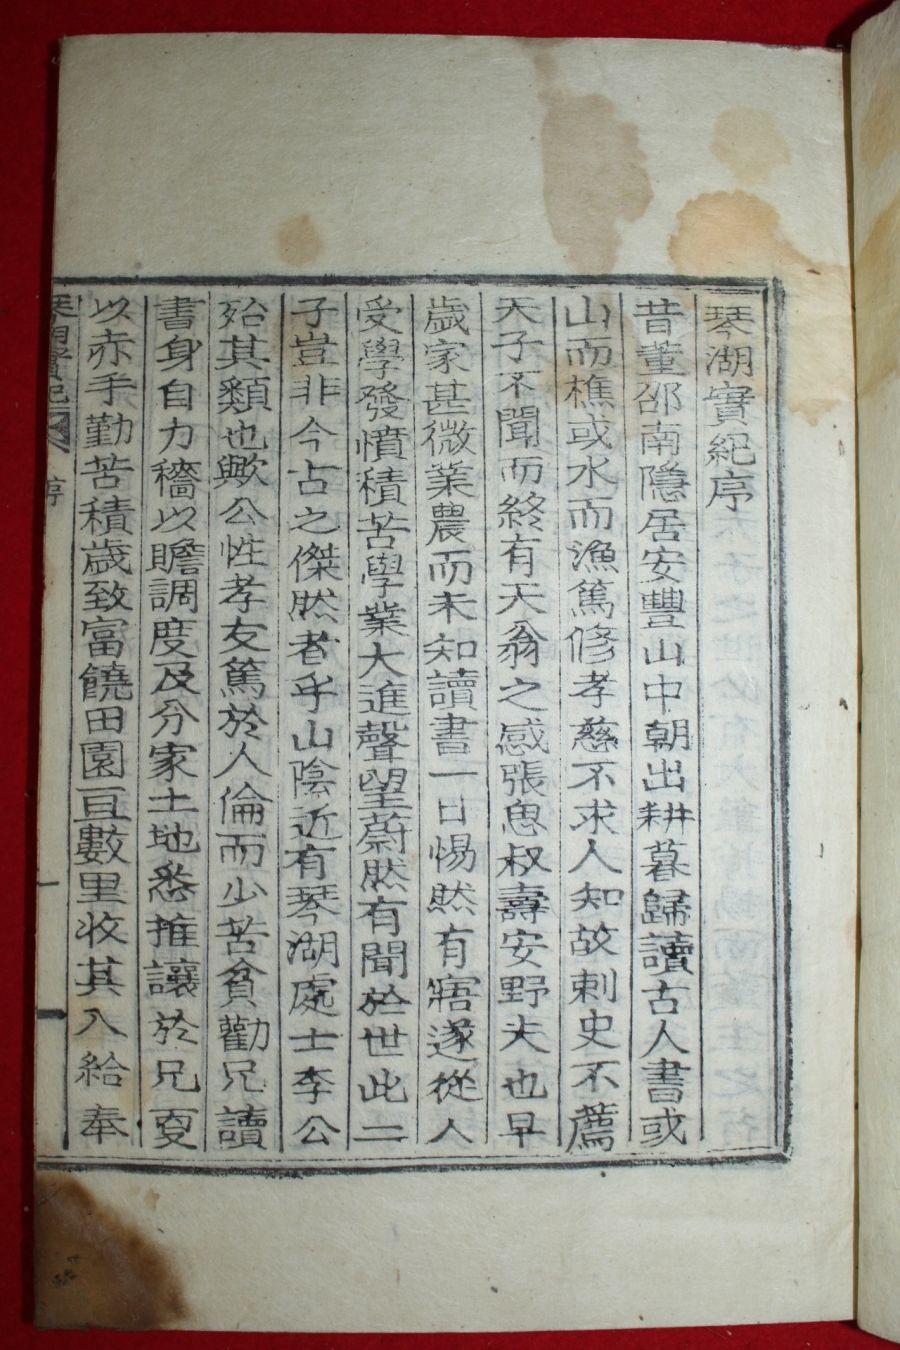 琴湖實紀序
昔董邵南隱居安豐山中朝出耕暮歸讀古人書或
山而樵或水而漁篤修孝慈不求人知故刺史不薦
天子不聞而終有天翁之感張思叔壽安野夫也早
歲家甚微業農而未知讀書一日惕然有寤遂從人
受學發憤積苦學業大進聲望蔚然有聞於世此二
子豈非今占之傑然者乎山陰近有琴湖處士李公
殆其類也歟公性孝友篤於人倫而少苦貧勸兄讀
書身自力穡以贍調度及分家土地悉推讓於兄夏
以赤手勤苦積歲致富饒田園亘數里收其入給奉
琴湖實紀 序